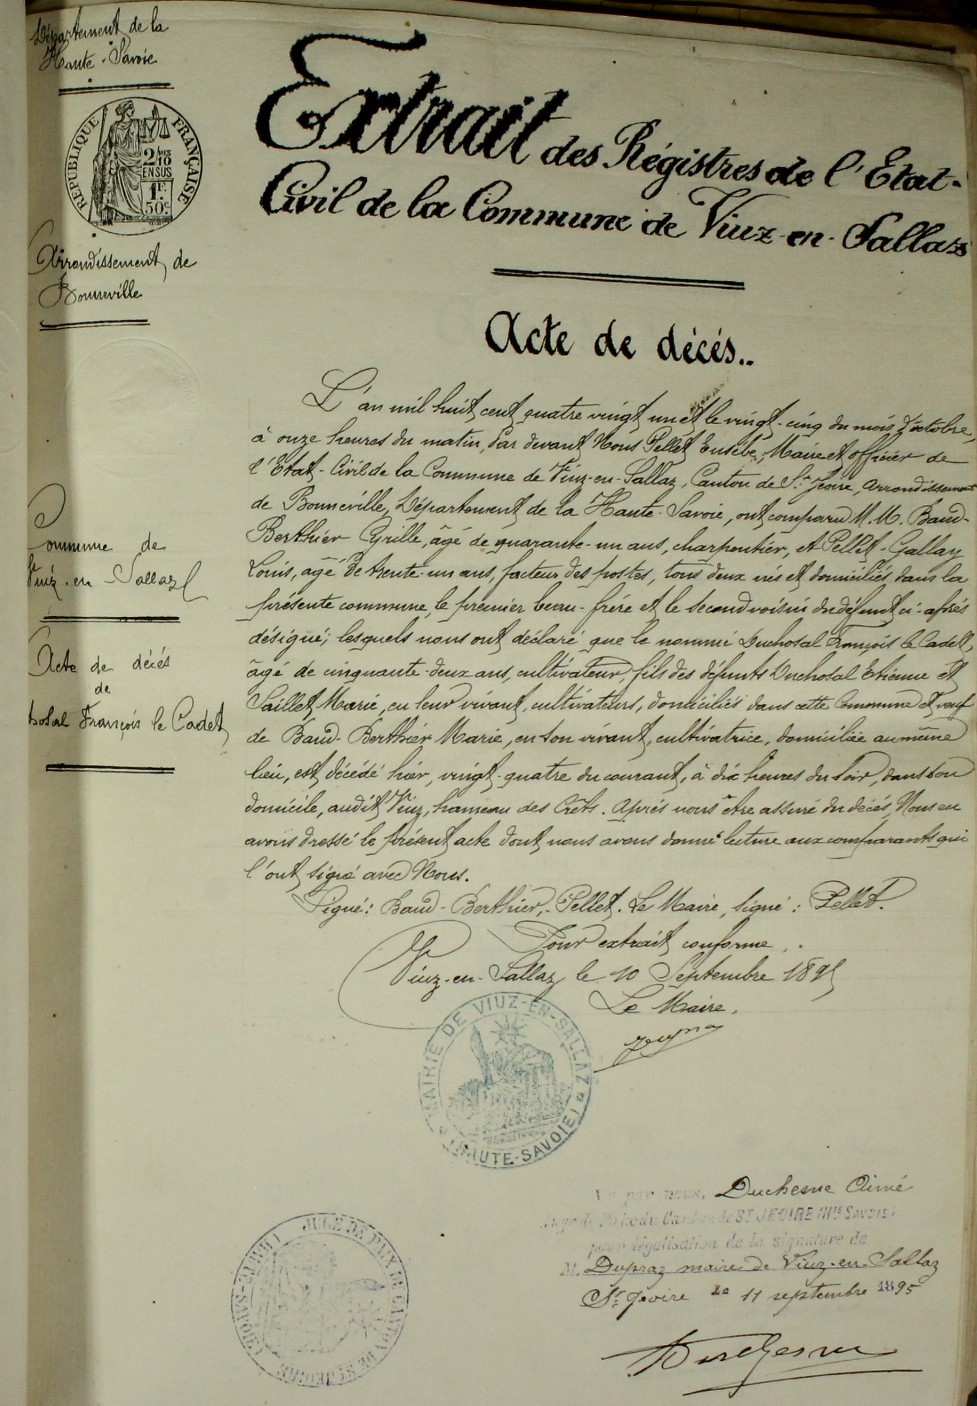 Département de la
Haute-Savoie
RÉPUBLIQUE FRANÇAISE
2/10
EN SUS
1F
50c
Arrondissement de
Bonneville
Commune de
Viuz-en-Sallaz
Acte de décés
de
hosal François le Cadet
Extrait des Régistres de l'Etat-
Civil de la Commune de Viuz-en-Sallaz
Acte de décés..
L'an mil huit cent quatre vingt un et le vingt-cinq du mois d'octobre,
à onze heures du matin, Par devant Nous Pellet Eusèbe, Maire et officier de
l'Etat-Civil de la Commune de Viuz-en-Sallaz, Canton de St Jeoire, arrondissement
de Bonneville, Département de la Haute-Savoie, ont comparu M.M. Baud-
Berthier Grille, âgé de quarante-un ans, charpentier, et Pellet-Gallay
Louis, âgé de trente-un ans, facteur des postes, tous deux nés et domiciliés dans la
présente commune, le premier beau-frére et le second voisin du défunt ci-aprés
désigné; lesquels nous ont déclaré que le nommé Duchosal François le Cadet,
âgé de cinquante-deux ans, cultivateur, fils des défunts Duchosal Etienne et
Saillet Marie, en leur vivant, cultivateurs, domiciliés dans cette Commune et veuf
de Baud-Berthier Marie, en son vivant, cultivatrice, domiciliée au même
lieu, est décédé hier, vingt-quatre du courant, à dix heures du soir, dans son
domicile, audit Viuz, hameau des Crêts. Aprés nous être assuré du décés, Nous en
avons dressé le présent acte dont nous avons donné lecture aux comparants qui
l'ont signé avec Nous.
Signé: Baud-Berthier, Pellet. Le Maire, signé: Pellet.
Pour extrait conforme.
Viuz-en-Sallaz le 10 Septembre 1895
Le Maire,
MAIRIE DE VIUZ-EN-SALLAZ
(HAUTE-SAVOIE)
Vu par nous, Duchesne Aimé
Juge de Paix du Canton de ST JEOIRE (Hte SAVOIE)
pour légalisation de la signature de
M. Dupraz maire de Viuz-en-Sallaz
St Jeoire le 11 septembre 1895
Duchesne
JUGE DE PAIX DU CANTON DE ST JEOIRE